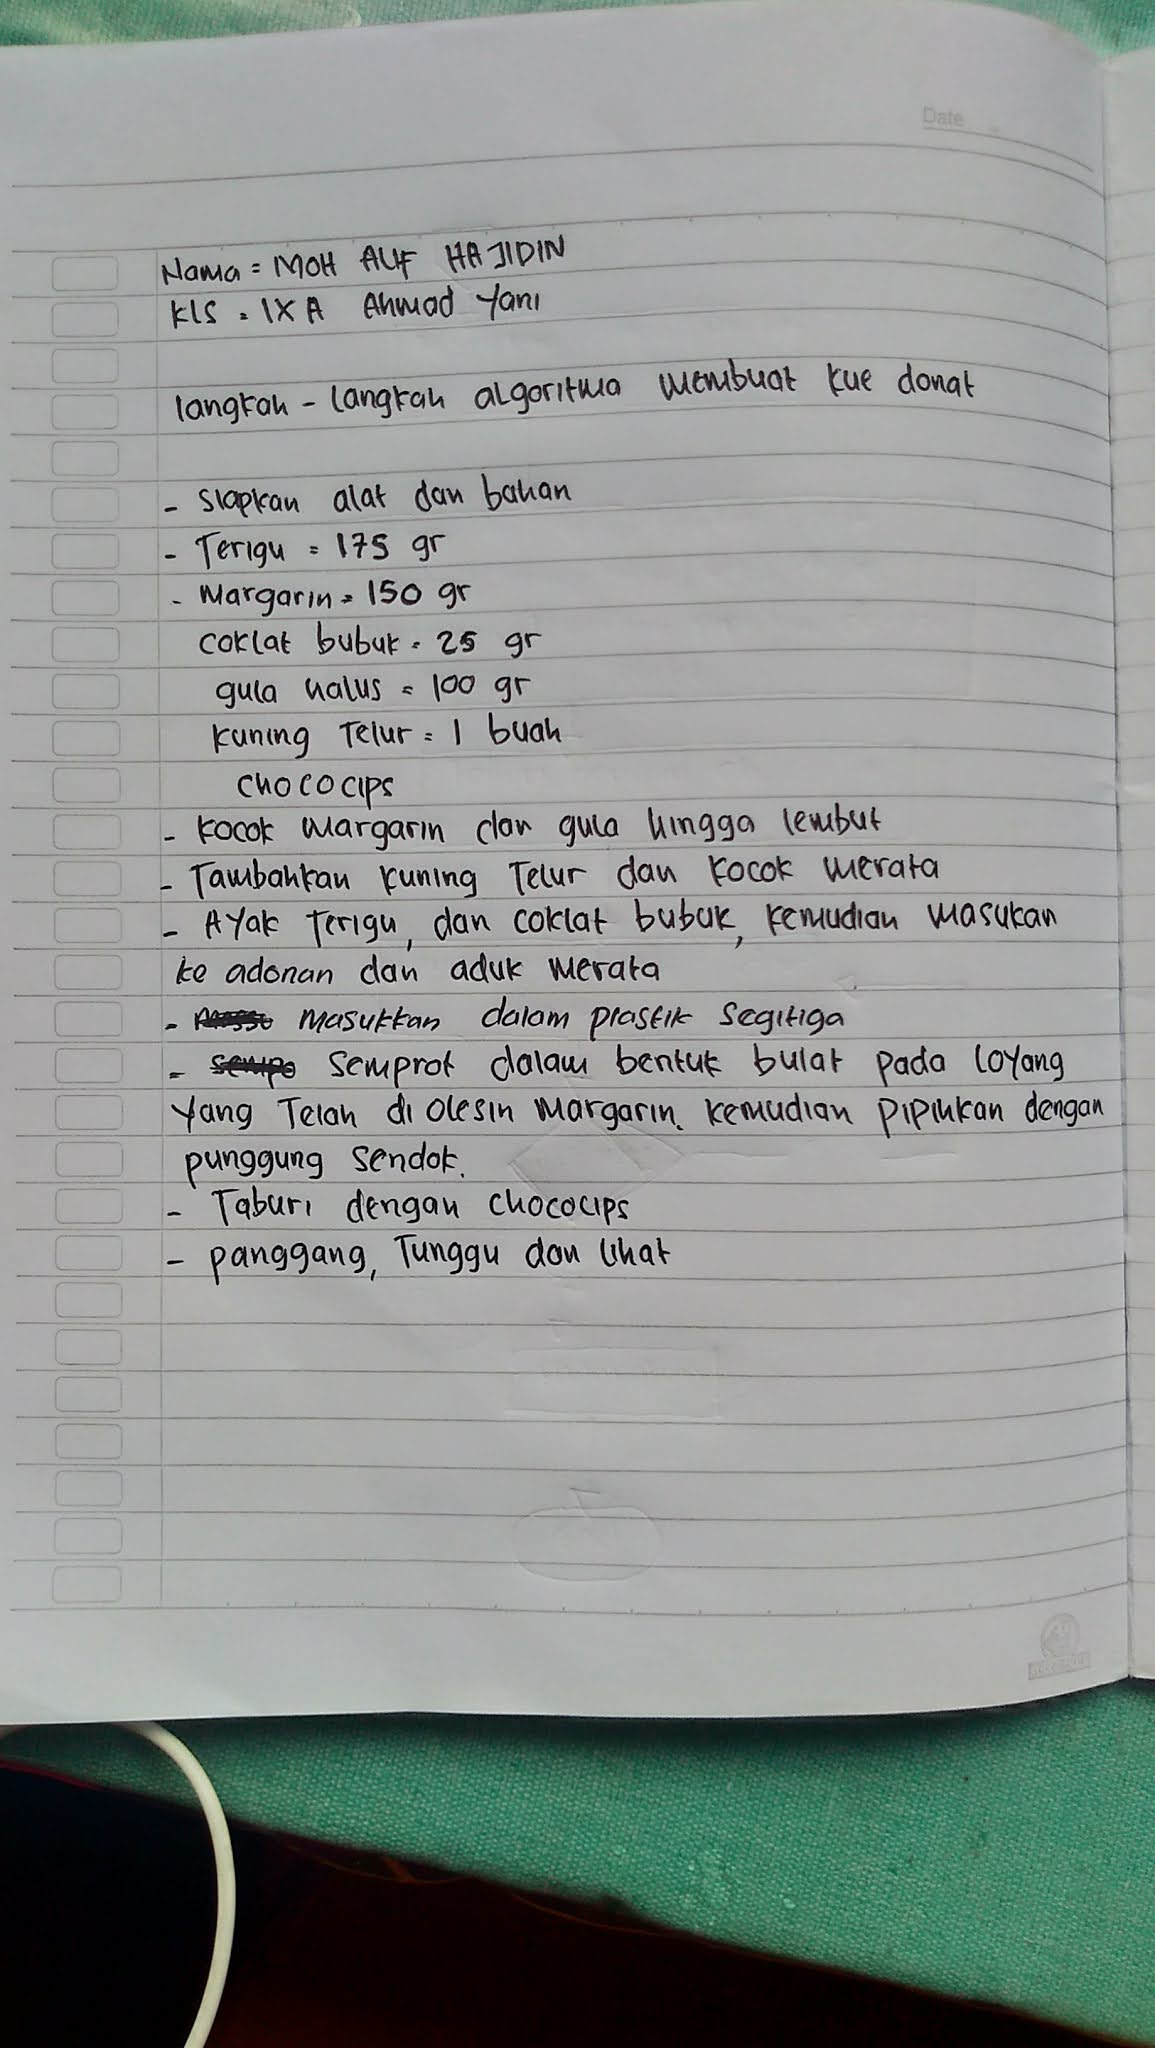 Date
Nama = MOH ALIF HAJIDIN
Kls = IX A Ahmad Yani
langkah - langkah algoritma membuat kue donat
- Siapkan alat dan bahan
- Terigu = 175 gr
- Margarin = 150 gr
coklat bubuk = 25 gr
gula halus = 100 gr
kuning Telur = 1 buah
chococips
- kocok margarin dan gula hingga lembut
- Tambahkan kuning Telur dan kocok merata
- Ayak Terigu, dan coklat bubuk, kemudian masukan
ke adonan dan aduk merata
- masukkan dalam plastik segitiga
- semprot dalam bentuk bulat pada loyang
yang Telah di olesin margarin. kemudian pipihkan dengan
punggung sendok.
- Taburi dengan chococips
- panggang, Tunggu dan lihat